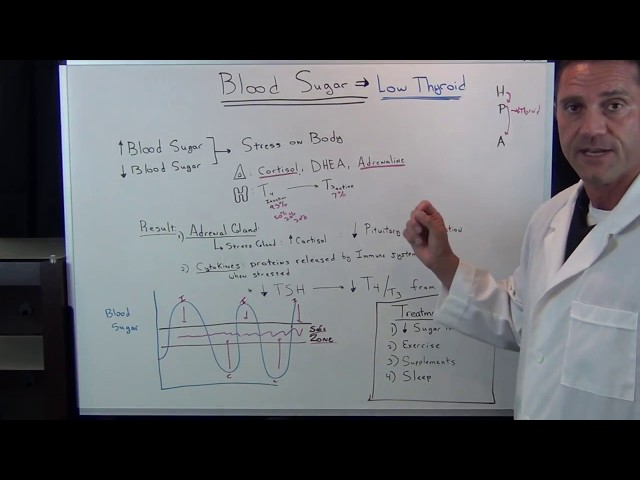 Blood Sugar ⇒ Low Thyroid
H
P → Thyroid
A
↑ Blood Sugar
↓ Blood Sugar
→ Stress on Body
Cortisol, DHEA, Adrenaline
T4 → T3 active
Inactive 7%
93%
Result: 1) Adrenal Gland
↳ Stress Gland: ↑ Cortisol : ↓ Pituitary
2) Cytokines: proteins released by Immune system
when stressed
↓ TSH → ↓ T4/T3 from
Blood
Sugar
I I I
Safe
Zone
C C
1) ↓ Sugar
2) Exercise
3) Supplements
4) Sleep